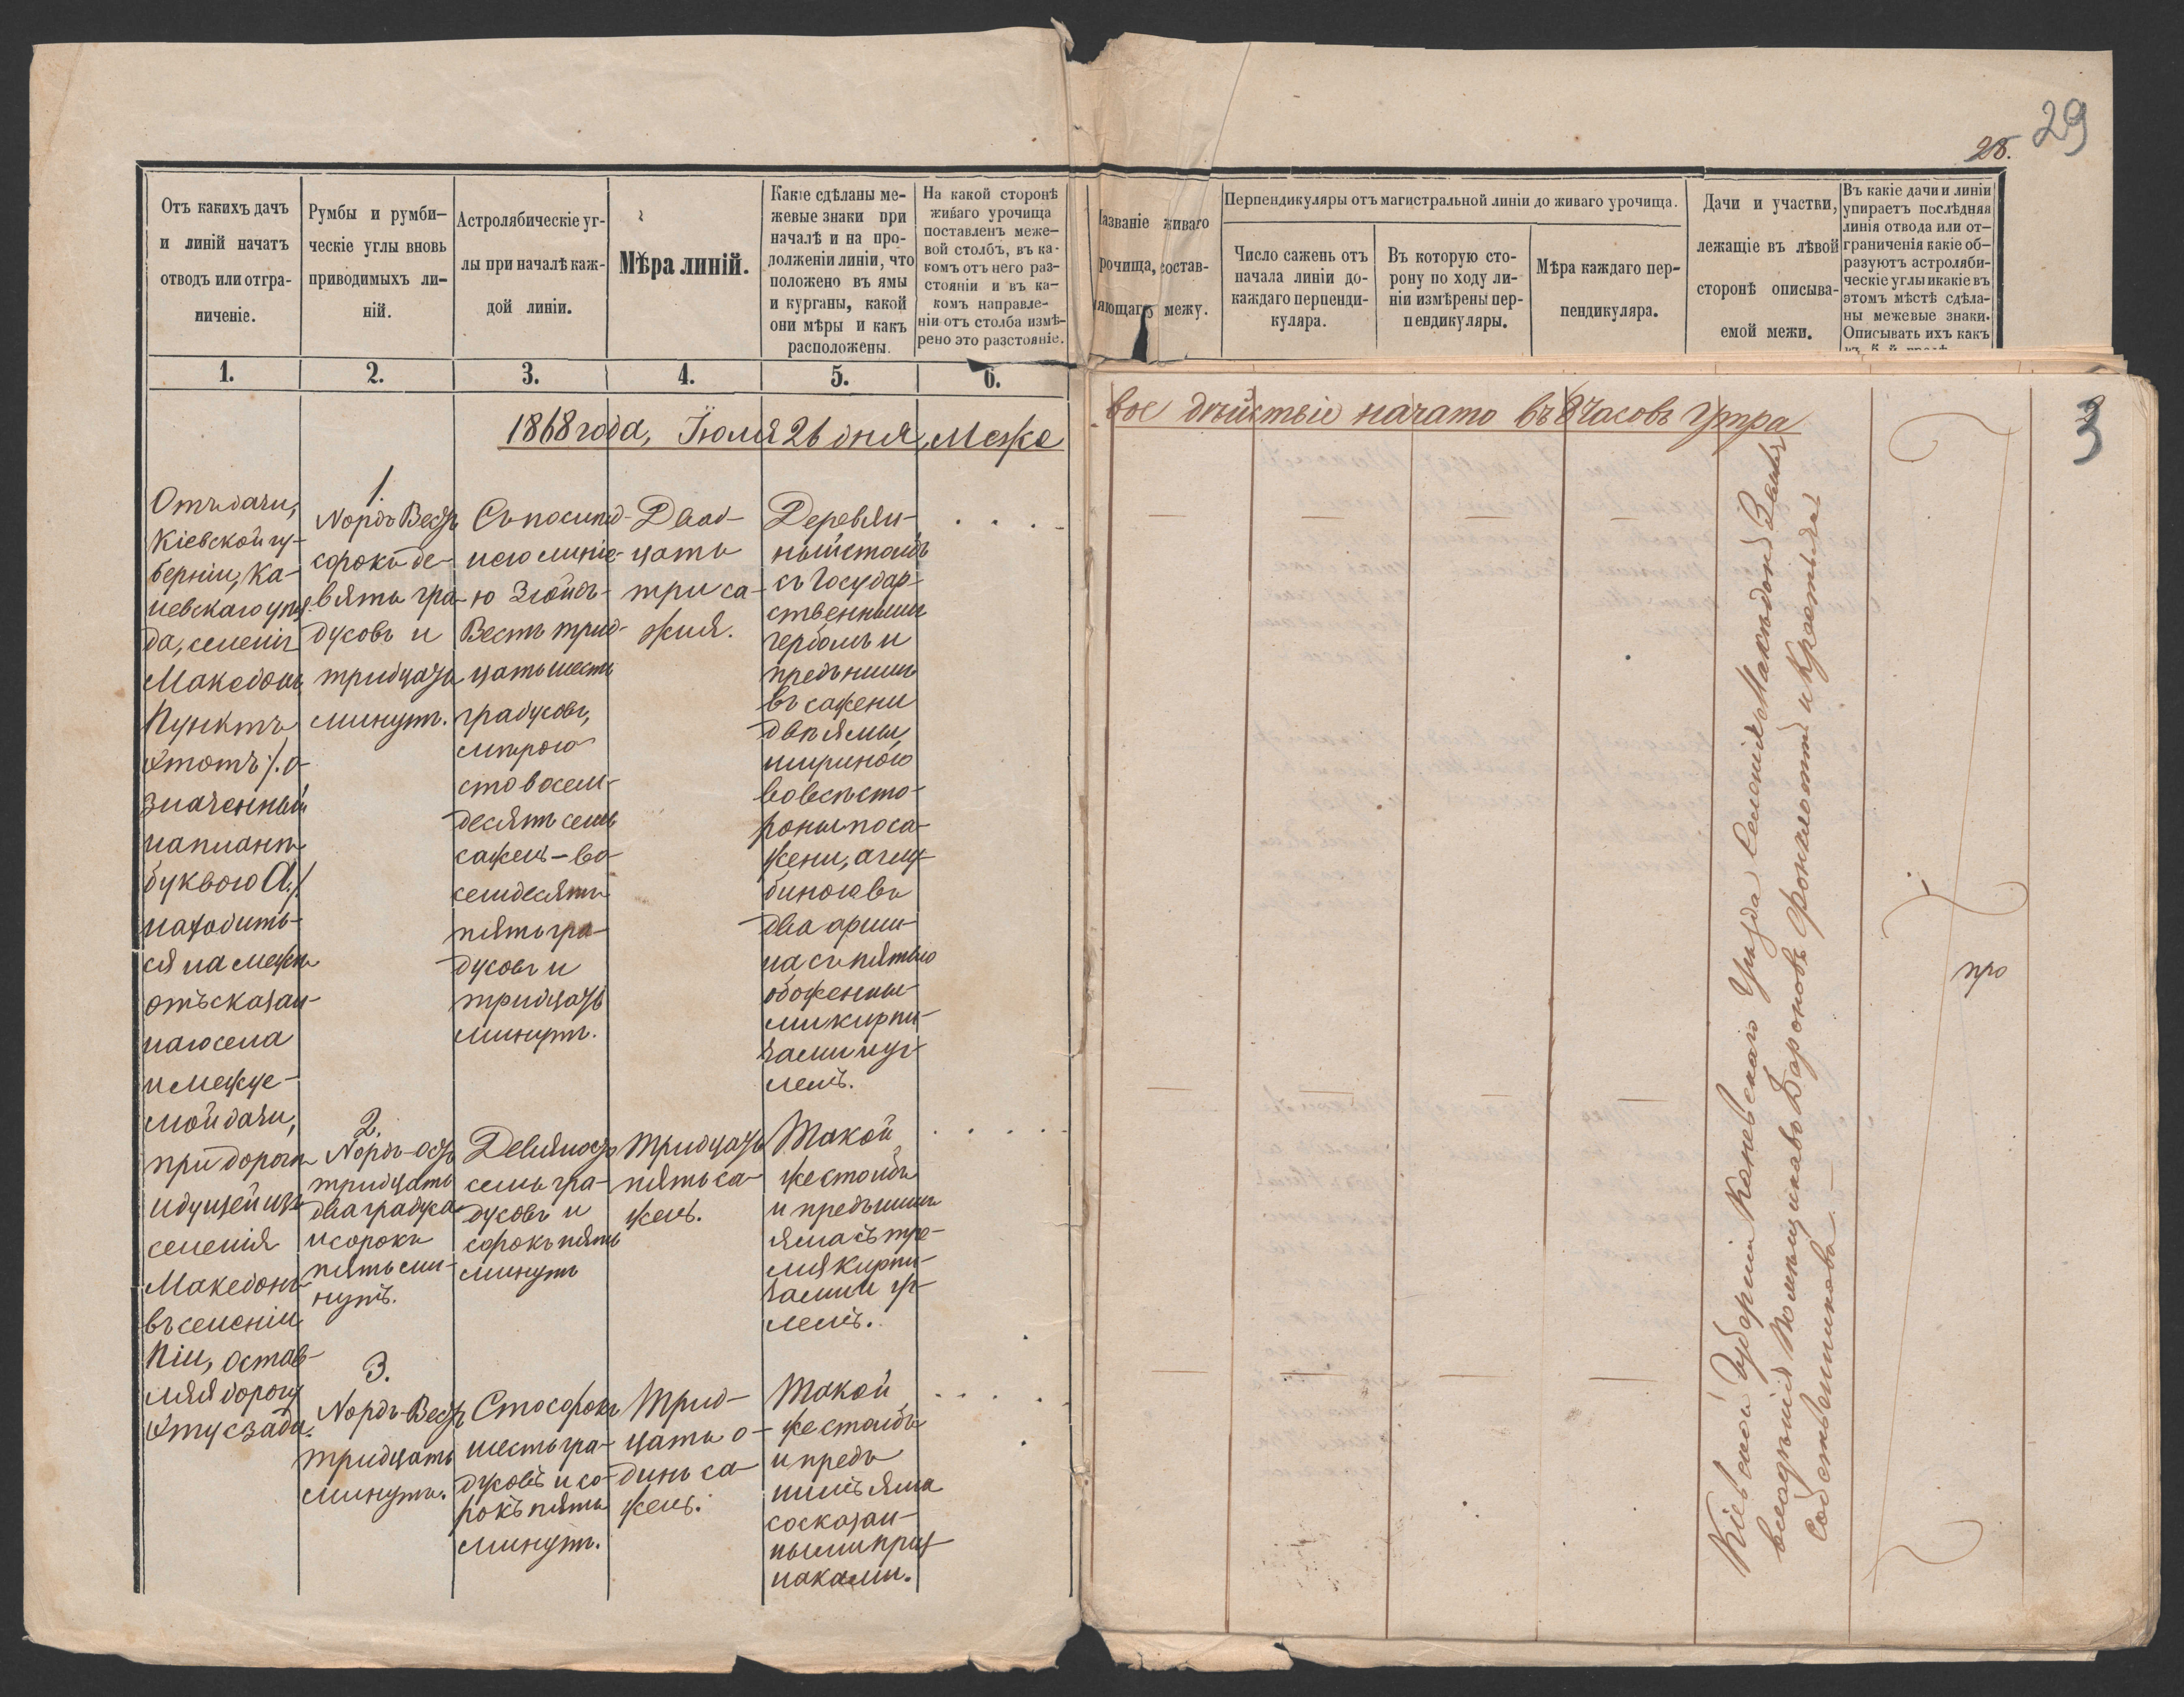 29
28.
Отъ какихъ дачъ
и линій начатъ
отводъ или отгра-
ниченіе.
Румбы и румби-
ческіе углы вновь
приводимыхъ ли-
ній.
Астролябическіе уг-
лы при началѣ каж-
дой линіи.
Мѣра линій.
Какіе сдѣланы ме-
жевые знаки при
началѣ и на про-
долженіи линіи, что
положено въ ямы
и курганы, какой
они мѣры и какъ
расположены.
На какой сторонѣ
живаго урочища
поставленъ меже-
вой столбъ, въ ка-
комъ отъ него раз-
стояніи и въ ка-
комъ направле-
ніи отъ столба измѣ-
рено это разстояніе.
Названіе живаго
рочища, состав-
ляющаго межу.
Перпендикуляры отъ магистральной линіи до живаго урочища.
Число сажень отъ
начала линіи до-
каждаго перпенди-
куляра.
Въ которую сто-
рону по ходу ли-
ніи измѣрены пер-
пендикуляры.
Мѣра каждаго пер-
пендикуляра.
Дачи и участки,
лежащіе въ лѣвой
сторонѣ описыва-
емой межи.
Въ какіе дачи и линіи
упираетъ послѣдняя
линія отвода или от-
граниченія какіе об-
разуютъ астроляби-
ческіе углы и какіе въ
этомъ мѣстѣ сдѣла-
ны межевые знаки.
Описывать ихъ какъ
1.
2.
3.
4.
5.
6.
1868 года, Іюля 26 дня, Меже
вое дѣйствіе начато въ 8 часовъ утра
3
Отъ дачи,
Кіевской гу-
берніи, Ка-
невскаго уѣз-
да, селенія
Македонъ
Пунктъ
этотъ /. о-
значенный
на планѣ
буквою А./
находить-
ся на межѣ
отъ сказан-
наго села
и межуе-
мой дачи,
при дорогѣ
идущей изъ
селенія
Македонъ
въ селеніи
Піи, остав-
ляя дорогу
эту сзади.
1.
Nордъ Вестъ
сорокъ де-
вять гра-
дусовъ и
тридцать
минутъ.
Съ послѣд-
нею линіе-
ю Зюйдъ-
Вестъ трид-
цать шесть
градусовъ,
мѣрою
сто восем-
десятъ семь
сажень – во-
семдесятъ
пять гра-
дусовъ и
тридцать
минутъ.
Двад-
цать
три са-
жня.
Деревян-
ный столбъ
съ Государ-
ственнымъ
гербомъ и
предъ нимъ
въ сажени
двѣ ямы,
шириною
во всѣ сто-
роны по са-
жени, а глу-
биною въ
два арши-
на съ пятью
обоженны-
ми кирпи-
чами и уг-
лемъ.
2.
Nордъ-Остъ
тридцать
два градуса
и сорокъ
пять ми-
нутъ.
Девяносто
семь гра-
дусовъ и
сорокъ пять
минутъ
Тридцать
пять са-
жень.
Такой
же столбъ
и предъ нимъ
яма съ тре-
мя кирпи-
чами и уг-
лемъ.
3.
Nордъ-Вестъ
тридцать
минутъ.
Сто сорокъ
шесть гра-
дусовъ и со-
рокъ пять
минутъ.
Трид-
цать о-
динъ са-
жень.
Такой
же столбъ
и предъ
нимъ яма
со сказан-
ными приз-
наками.
Кіевской Губерніи Каневскаго Уѣзда Селенія Македонъ Земля
владѣнія Помѣщиковъ Бароновъ и Крестьянъ
Собственниковъ. –
про